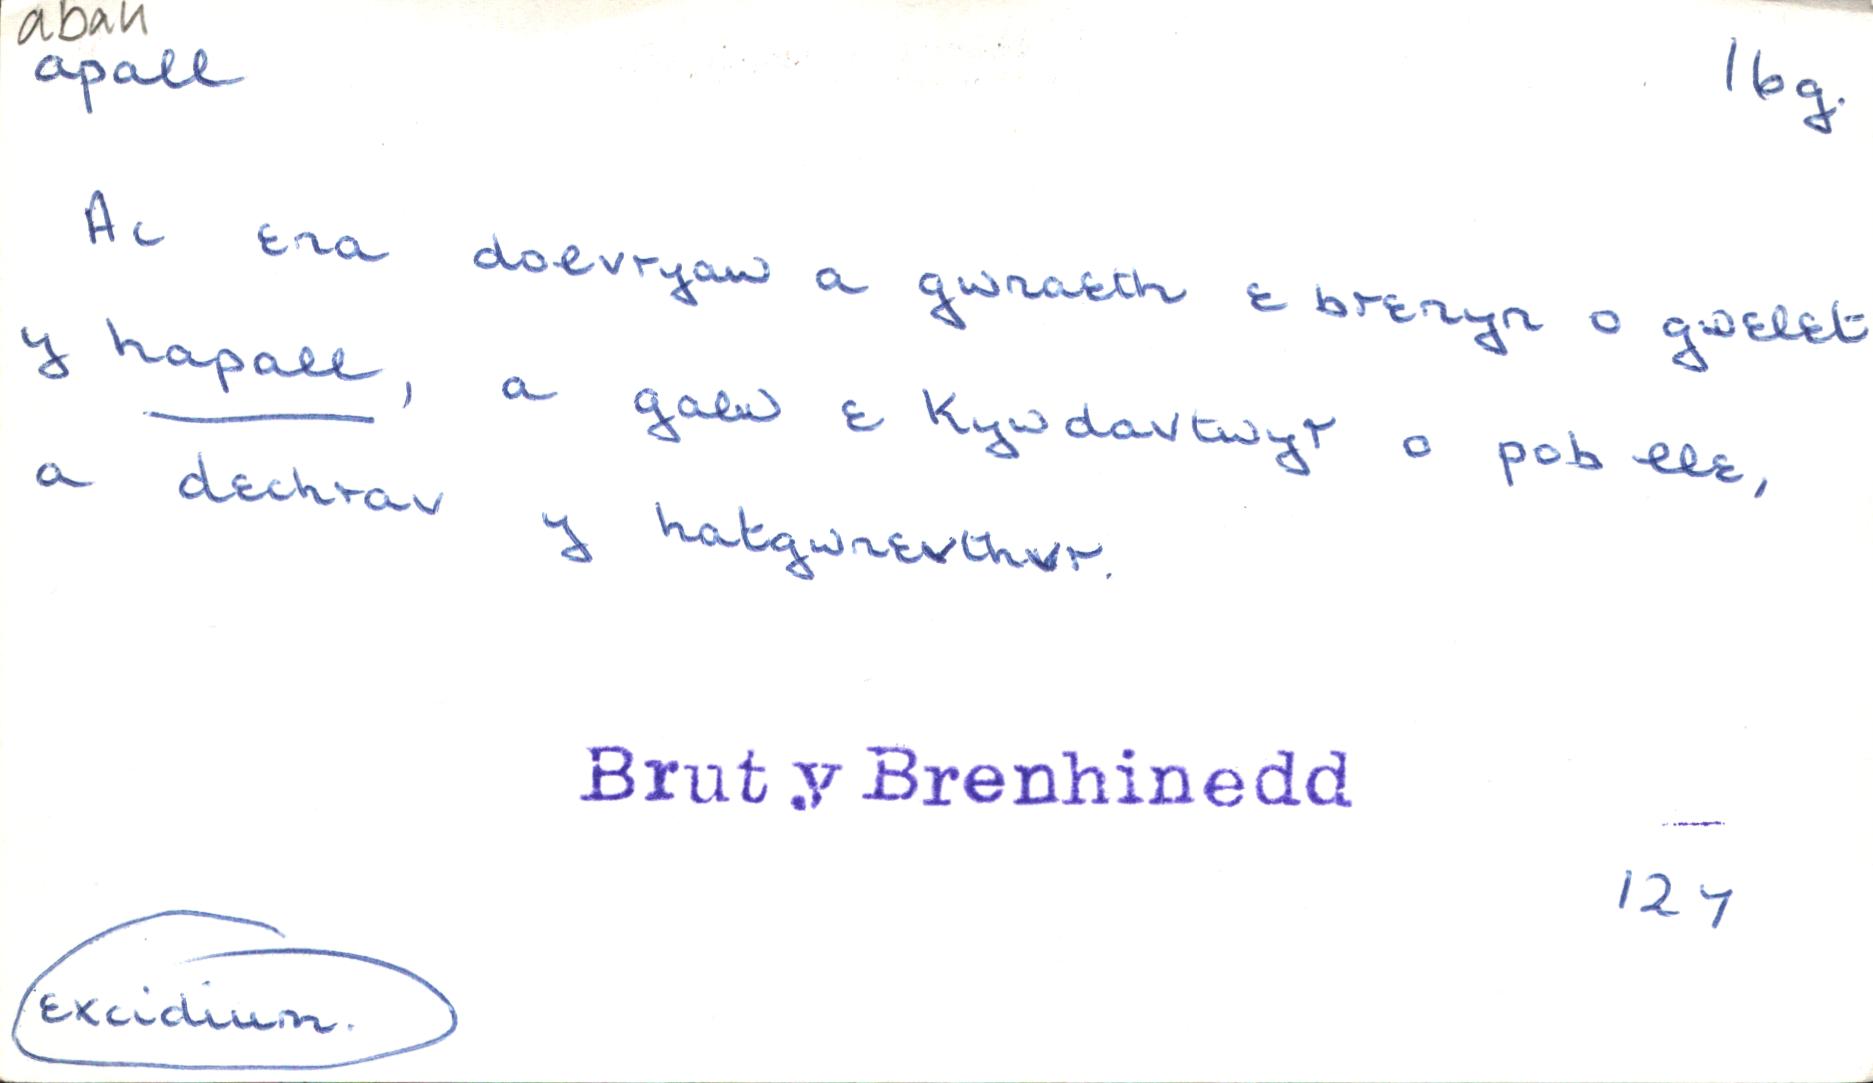 aball
apall 16g.
Ac ena dolvryaw a gwnaeth e brenyn o gwelet
y hapall, a galw e Kywdavtwyr o pob lle,
a dechrav y hatgwnevthvr.
Brut y Brenhinedd
127
excidium.